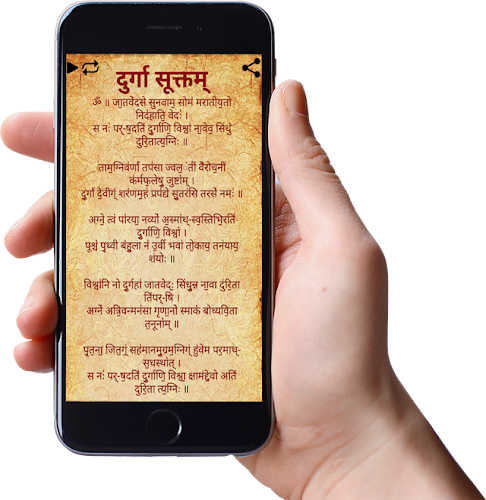 दुर्गा सूक्तम्
ॐ ॥ जा॒तवे॑दसे सुनवाम॒ सोम॑ मरातीय॒तो
निद॑हाति॒ वेदः॑ ।
स नः॑ पर्-ष॒दति॑ दु॒र्गाणि॒ विश्वा॑ ना॒वेव॒ सिंधुं॑
दुरि॒तात्य॒ग्निः ॥
ताम॒ग्निव॑र्णां तप॑सा ज्वल॒ ंतीं वै॑रोच॒नीं
क॑र्मफ॒लेषु॒ जुष्टा॑म् ।
दु॒र्गां दे॒वीग्ं शर॑णम॒हं प्रप॑द्ये सु॒तर॑सि तरसे॑ नमः॑ ॥
अग्ने॒ त्वं पा॑रया॒ नव्यो॑ अ॒स्माꣳथ्-स्व॒स्तिभि॒रति॑
दु॒र्गाणि॒ विश्वा॑ ।
पूश्च॑ पृ॒थ्वी ब॑हु॒ला न॑ उ॒र्वी भवा॑ तो॒काय॒ तन॑याय॒
शंयोः ॥
विश्वा॑नि नो दु॒र्गहा॑ जातवेदः॒ सिंधु॒न्न ना॒वा दु॑रि॒ता
ति॑पर्-षि ।
अग्ने॑ अत्रि॒वन्मन॑सा गृणा॒नो॑ स्माकं॑ बोध्यवि॒ता
त॒नूना॑म् ॥
पृ॒त॒ना॒ जित॒ग्ं॒ सह॑मानमु॒ग्रम॒ग्निग्ं हु॑वेम पर॒माथ्-
स॒धस्था॑त् ।
स नः॑ पर्-ष॒दति॑ दु॒र्गाणि॒ विश्वा॒ क्षाम॑द्दे॒वो अति॑
दुरि॒ता त्य॒ग्निः ॥